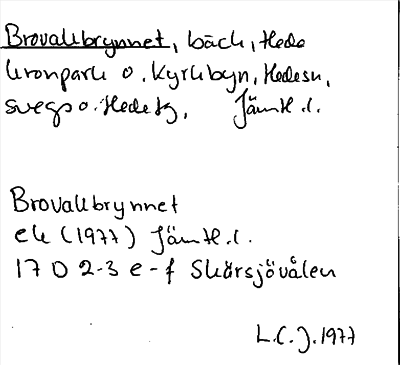 Brovallbrynnet, bäck, Hede
kronpark o. Kyrkbyn, Hedesn,
Svegs o. Hede tg, Jämtl. l.
Brovallbrynnet
ek (1977) Jämtl. l.
17 D 2-3 e-f Skärsjövålen
L.C.J. 1977